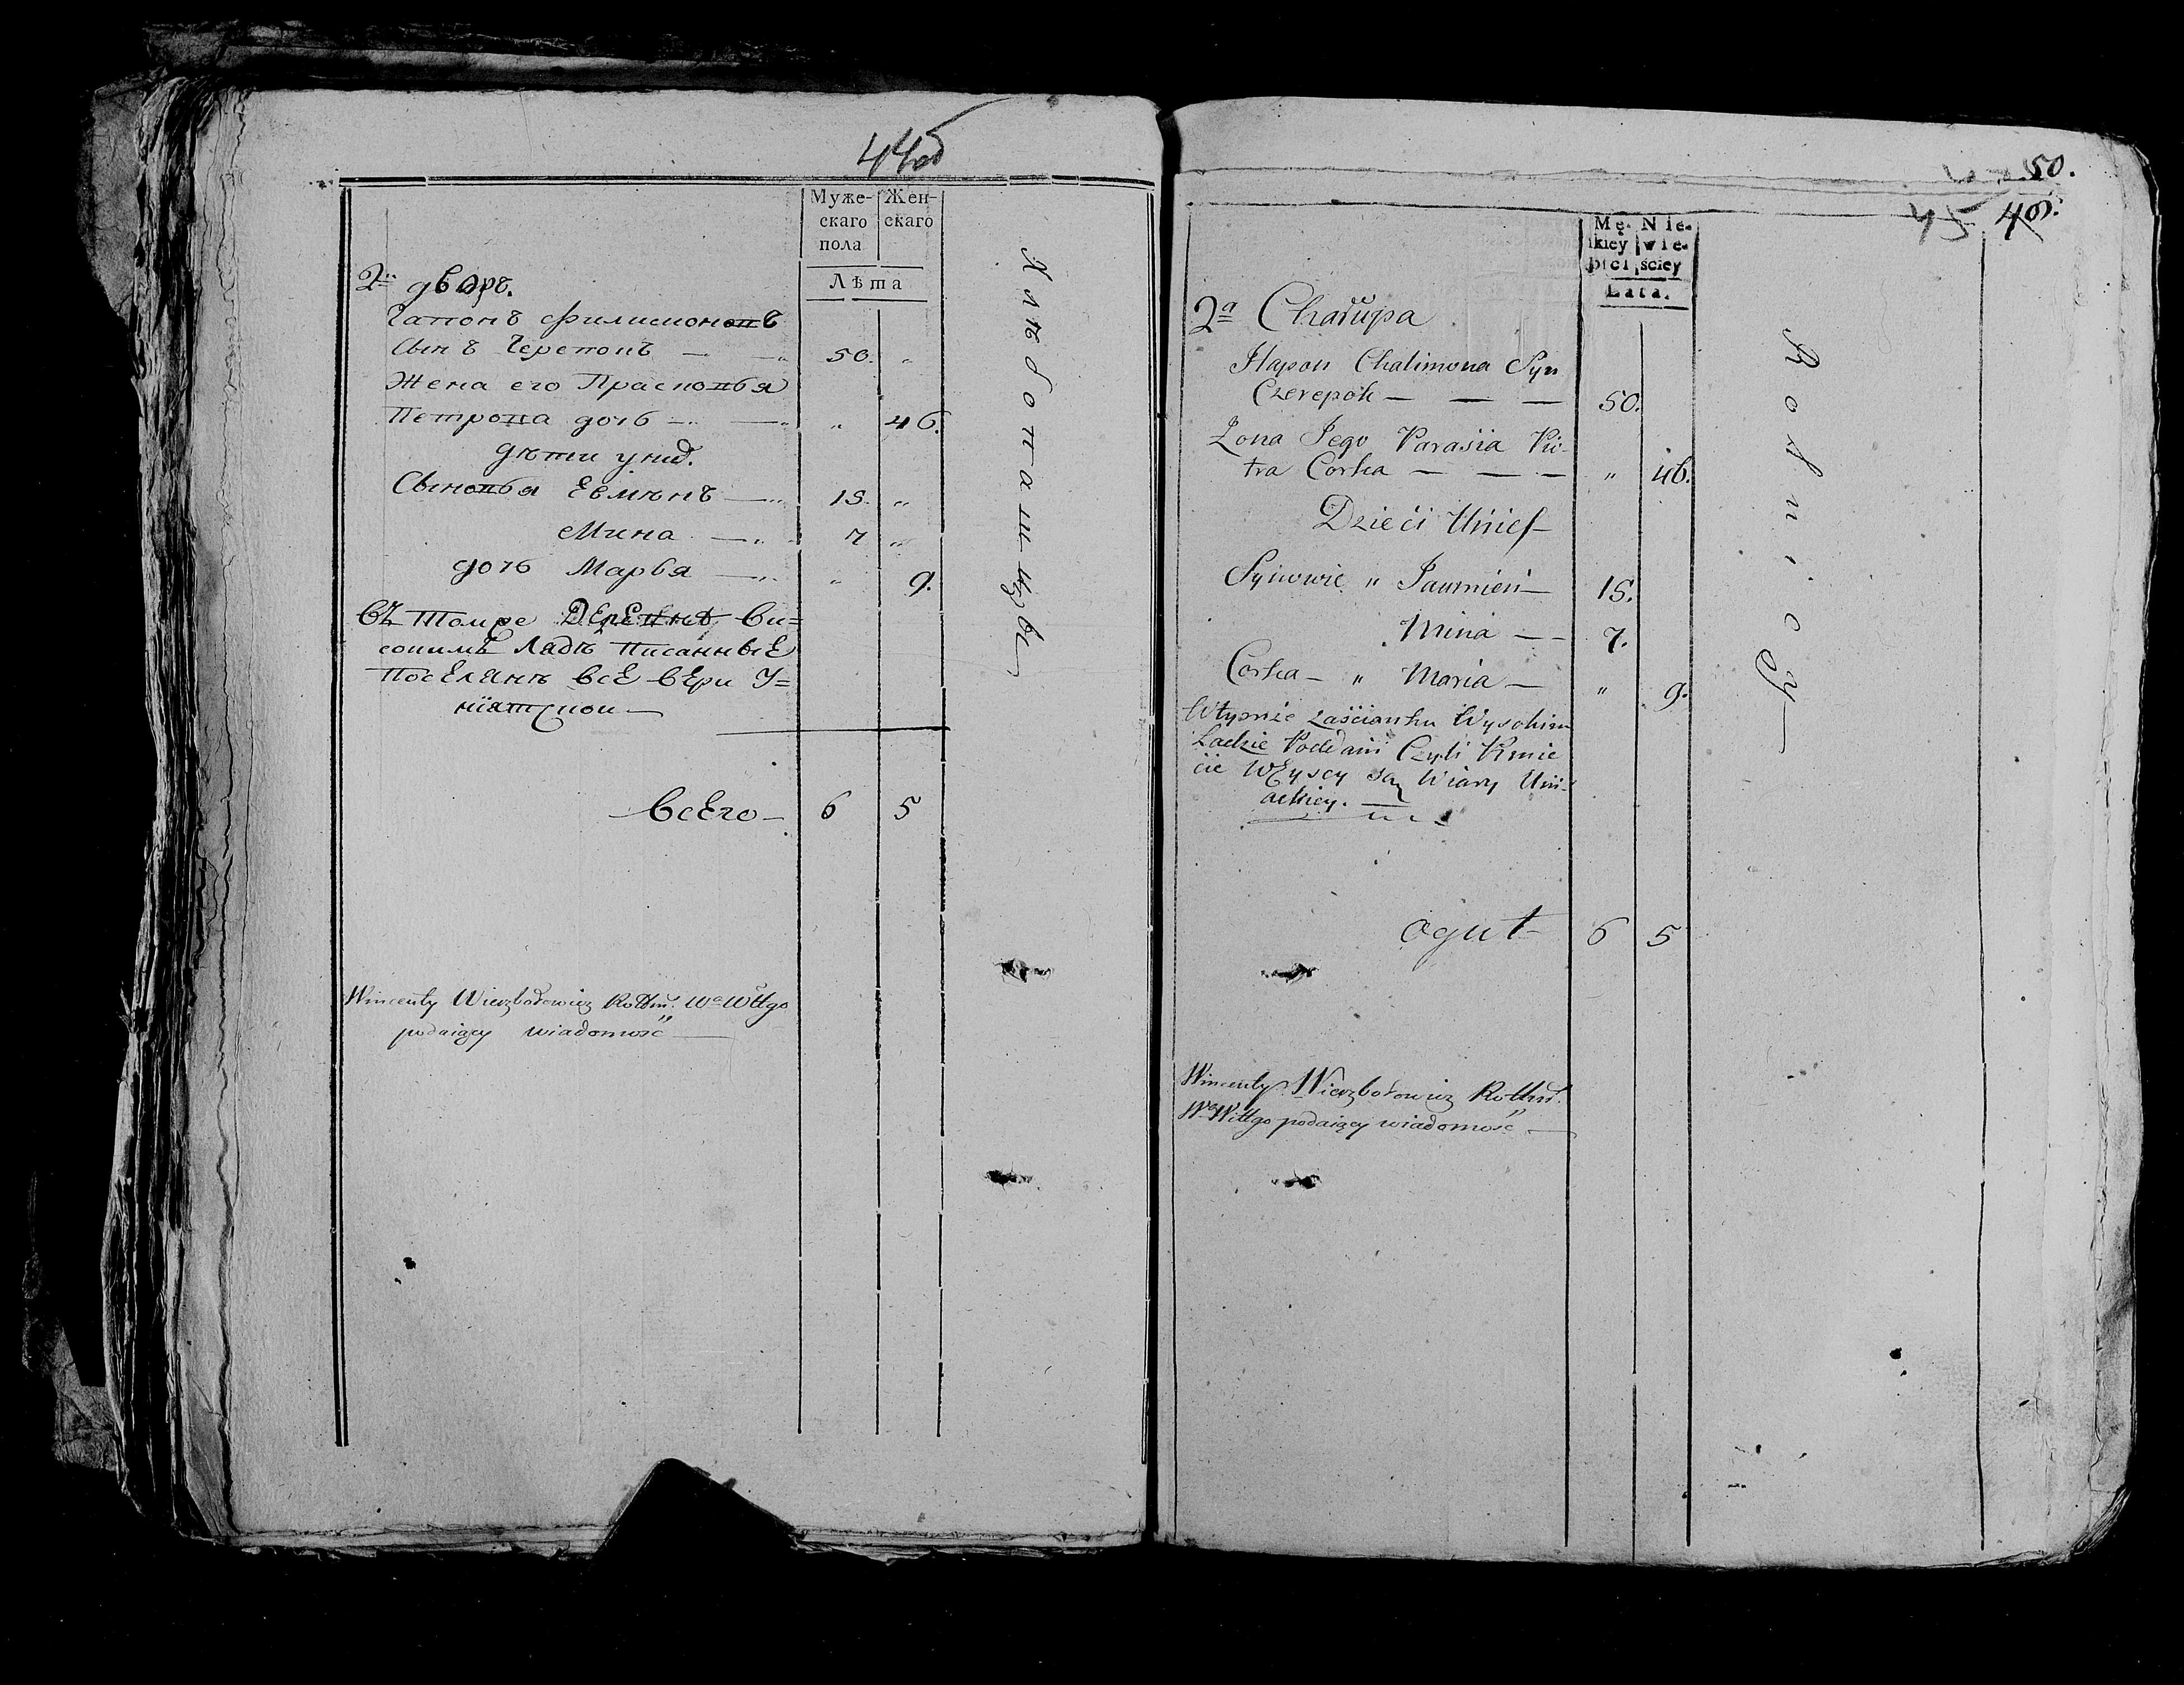 44об
Муже-
скаго
пола
Жен-
скаго
Лѣта
2й дворъ.
Гапонъ Филимоновъ
Сынъ Черепокъ — 50. "
Жена его Прасковья
Петрова дочь — " 46.
дѣти унид.
Сыновья Евмѣнъ — 15. "
Мина — 7 "
дочь Марья — " 9.
Въ томже Деревнѣ Ви=
социмъ Лядѣ писанные
поселянѣ все вери У=
ніятской —
Всего — 6 5
Wincenty Wierzbołowicz Rottm. Wa Wttgo
podaiący wiadomość —
Хлѣбопашцы
50.
45 46.
Mę-
ſkiey
płci
Nie-
wie-
ściey
Lata.
2a Chałupa
Hapon Chalimona Syn
Czerepok — — — 50.
Zona Jego Parasia Pio-
tra Corka — — — " 46.
Dzieci Unief
Synowie " Jaumień — 15.
Mina — — 7.
Corka — " Maria — " 9.
Wtymże zaścianku Wysokim
Ladzie Poddani Czyli Kmie
cie Wszyscy są Wiary Uni-
ackiey. —
Oguł 6 5
Wincenty Wierzbołowicz Rottm.
Wa Wittgo podaiący wiadomość —
Rolnicy